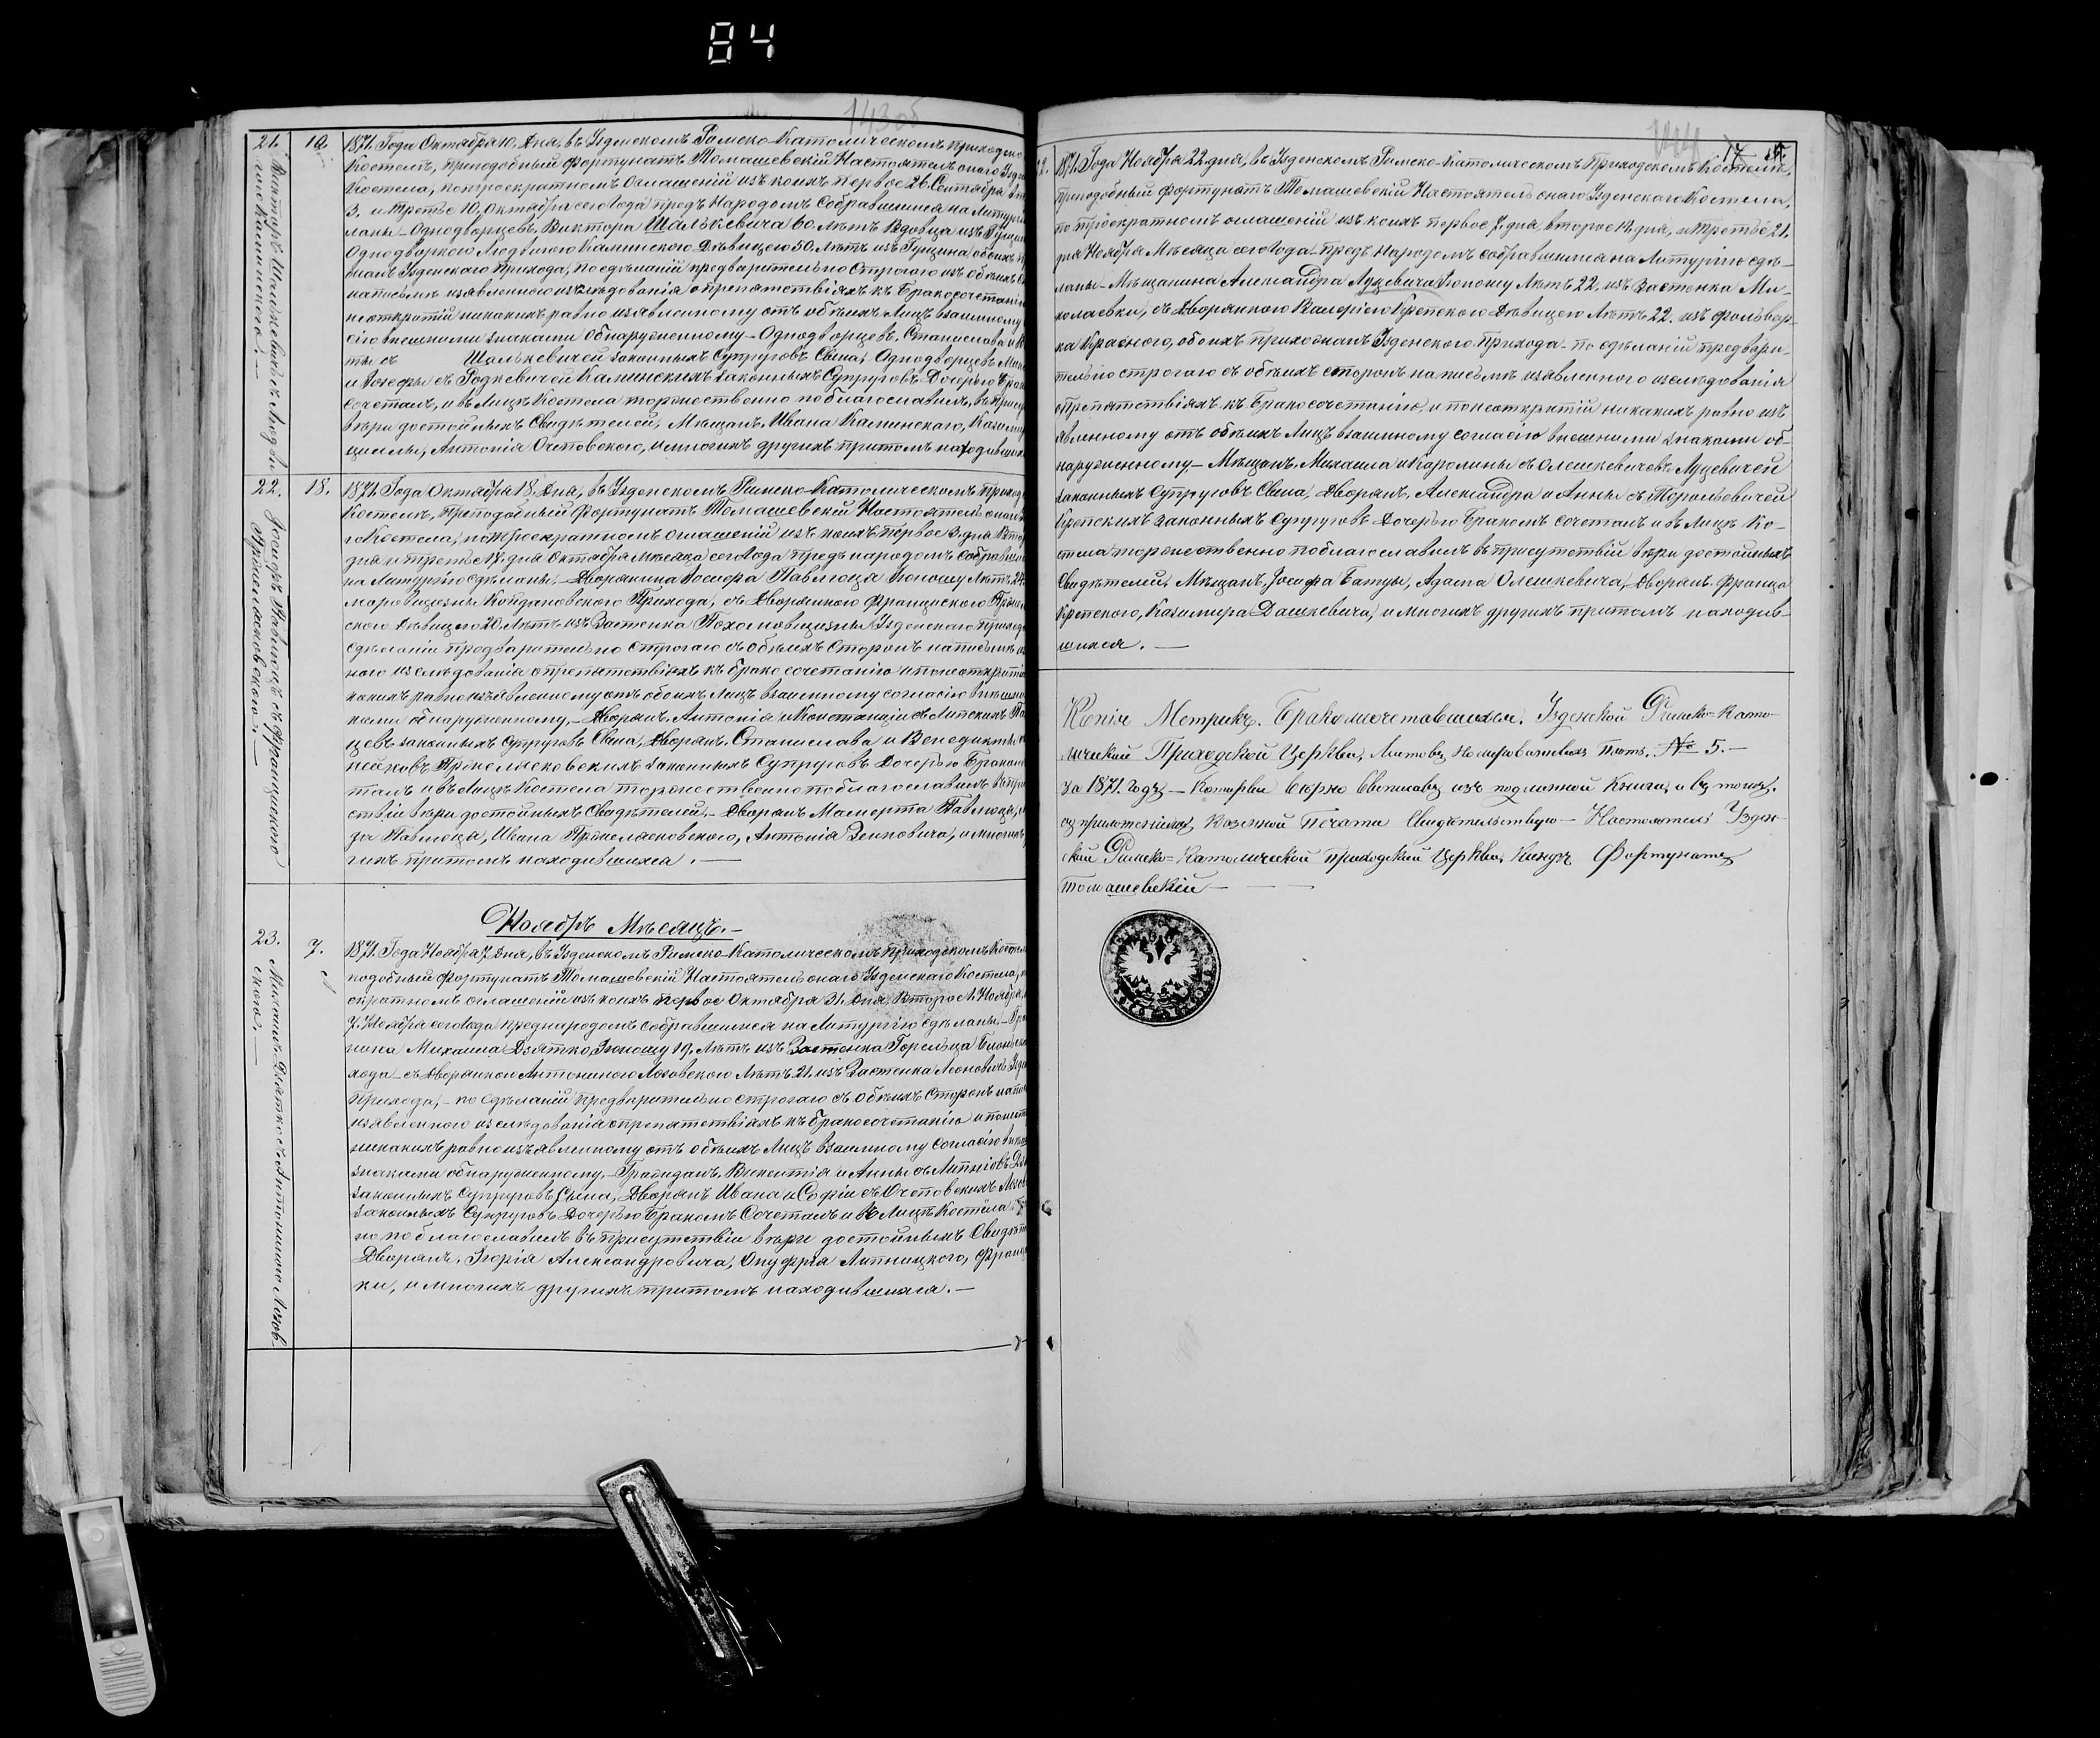 84
143об
21.
10.
Викторъ Шалькевичъ съ Людви
сею Калинского. —
1871. Года Октября 10. Дня, въ Узденскомъ Римско-Католическомъ приходско
Костелѣ, преподобный Фортунатъ Томашевскій Настоятель онаго Узде
Костела, по троекратномъ оглашеній изъ коихъ первое 26. Сентября вто
3. и третье 10, Октября сего Года предъ Народомъ собравшимся на Литургі
ланы — Однодворцевъ, Виктора Шалькевича 60. лѣтъ Вдовца изъ
Однодворкою Людвикою Калинскою Дѣвицею 50. лѣтъ изъ обоихъ п
Узденскаго Прихода, по сдѣланій предварительно строгаго изъ обѣихъ с
написьмѣ изъявленного изслѣдованія о препятствіяхъ къ Бракосочетанію
неоткрытій никакихъ равно изъявленному отъ обѣихъ Лицъ взаимному
сію внешними знаками обнаруженному — Однодворцевъ, Станислава и
ты съ Шалькевичей законныхъ Супруговъ Сына, Однодворцевъ
и Іозефы съ Родкевичей Калинскихъ законныхъ Супруговъ Дочерью Брак
сочеталъ, и въ Лицѣ Костела торжественно поблагославилъ, въ прису
вѣры достойныхъ Свидѣтелей, Мѣщанъ, Ивана Калинского, Казими
Антонія Очтовского, и многихъ другихъ притомъ находивших
22.
18.
Іосифъ Павлюцъ съ Францишкою
1871. Года Октября 18. Дня, въ Узденскомъ Римско-Католическомъ прихо
Костелѣ, преподобный Фортунатъ Томашевскій Настоятель онаго
го Костела, по троекратномъ оглашеній изъ коихъ первое 3. дня Вто
дня и третье 17. дня Октября мѣсяца сего Года предъ народомъ собравши
на Литургію сдѣланы, — Дворянина Іосифа Павлюца Юношу Лѣтъ 24.
Койдановского Прихода, съ Дворянкою Францискою
скою Дѣвицею 20. Лѣтъ изъ Застенка Пахомовщизны Узденского прихо
сдѣланій предварительно строгаго съ обѣихъ Сторонъ написьмѣ
ного изслѣдованія о препятствіяхъ къ бракосочетанію и понеоткрытій
какихъ равно изъявленному отъ обоихъ Лицъ взаимному согласію внѣшни
ками обнаруженному, — Дворянъ, Антонія и Констанціи съ Липскихъ Па
цевъ законныхъ Супруговъ Сына, Дворянъ, Станислава и Бенедикты
законныхъ Супруговъ Дочерью Бракомъ
талъ и въ Лицѣ Костела торжественно поблагославилъ въ при
ствіи вѣры достойныхъ Свидѣтелей, — Дворянъ Мамерта Павлюца,
Павлюца, Ивана Антонія Зенковича, и многихъ
гихъ притомъ находившихся. —
Ноябрь Мѣсяцъ. —
23.
7.
Михаилъ Дзятко съ Антониною Лозов
скою. —
1871. Года Ноября 7. Дня, въ Узденскомъ Римско-Католическомъ приходскомъ Костел
подобный Фортунатъ Томашевскій Настоятель онаго Узденскаго Костела,
кратномъ оглашеній изъ коихъ первое Октября 31. Дня, Второе 1. Ноября,
7. Ноября сего Года предъ народомъ собравшимся на Литургію сдѣланы, — Гра
нина Михаила Дзятко, Юношу 19. Лѣтъ изъ Застенка Горельца
хода — съ Дворянкою Антониною Лозовскою Лѣтъ 21. изъ Застенка Леоновичъ Узде
Прихода, — по сдѣланій предварительно строгаго съ обѣихъ Сторонъ напи
изъявленного изслѣдованія о препятствіяхъ къ бракосочетанію и понеот
никакихъ равно изъявленному отъ обѣихъ Лицъ взаимному согласію внѣш
знаками обнаруженному, — Гражданъ, Викентія и Анны съ
законныхъ Супруговъ Сына, Дворянъ Ивана и Софіи съ Очтовскихъ Лозов
законныхъ Супруговъ Дочерью Бракомъ Сочеталъ и въ Лицѣ Костела
но поблагославилъ въ присутствіи вѣры достойныхъ Свидѣт
Дворянъ, Игорія Александровича, Онуфрія Липницкого, Франц
ки, и многихъ другихъ притомъ находившихся. —
144
17
1871. Года Ноября 22. дня, въ Узденскомъ Римско-Католическомъ Приходскомъ Костелѣ,
преподобный Фортунатъ Томашевскій Настоятель онаго Узденскаго Костела,
по троекратномъ оглашеній изъ коихъ первое 7. дня, второе 14. дня, и третьё 21.
дня Ноября Мѣсяца сего Года — предъ народомъ собравшимся на Литургію сдѣ-
ланы — Мѣщанина Александра Луцевича Юношу Лѣтъ 22. изъ Застенка Ми-
колаевки, съ Дворянкою Валерією Дѣвицею Лѣтъ 22. изъ Фольвар-
ка обоихъ прихожанъ Узденского Прихода — по сдѣланій предвари-
тельно строгаго съ обѣихъ сторонъ написьмѣ изъявленного изслѣдованія
о препятствіяхъ къ Бракосочетанію, и понеоткрытій никакихъ равно изъ-
явленному отъ обѣихъ Лицъ взаимному согласію внешними знаками об-
наруженному — Мѣщанъ, Михаила и Каролины съ Олешкевичевъ Луцевичей
законныхъ Супруговъ Сына, Дворянъ, Александра и Анны съ
законныхъ Супруговъ Дочерью Бракомъ сочеталъ и въ Лицѣ Ко-
стела торжественно поблагославилъ въ присутствій вѣры достойныхъ
Свидѣтелей, Мѣщанъ, Іосифа Адама Олешкевича, Дворянъ Франца
Казимира Дашкевича, и многихъ другихъ притомъ находив-
шихся. —
Копія Метрикъ. Бракомсочетавшихся. Узденской Римско-Като-
лической Приходской Церкви, Листовъ Номерованныхъ Пять. № 5. —
за 1871. Годъ — Которыи вѣрно выписавъ изъ подлинной Книги, и въ томъ.
съ приложеніемъ, Казенной Печати Свидѣтельствую — Настоятель Узден-
ской Римско-Католической приходской Церкви, Ксендзъ Фортунатъ
Томашевскій —